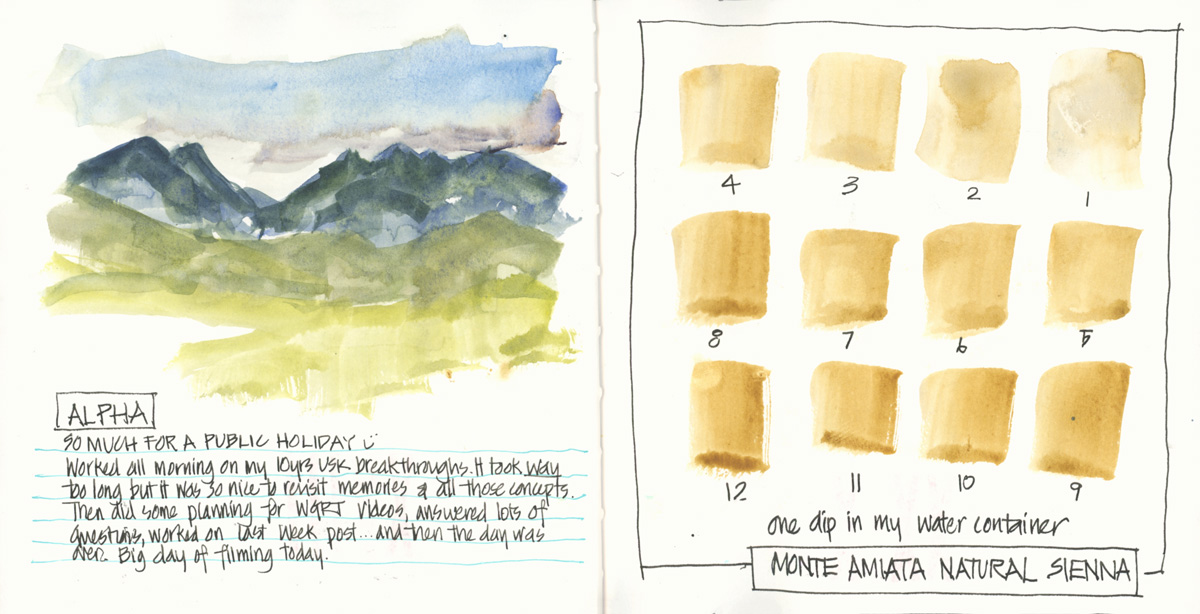 ALPHA
SO MUCH FOR A PUBLIC HOLIDAY
Worked all morning on my 10yrs USK breakthroughs. It took way
too long but it was so nice to revisit memories & all those concepts.
Then did some planning for videos, answered lots of
questions, worked on last week post...and then the day was
over. Big day of filming today.
4 3 2 1
8 7 6 5
12 11 10 9
one dip in my water container
MONTE AMIATA NATURAL SIENNA